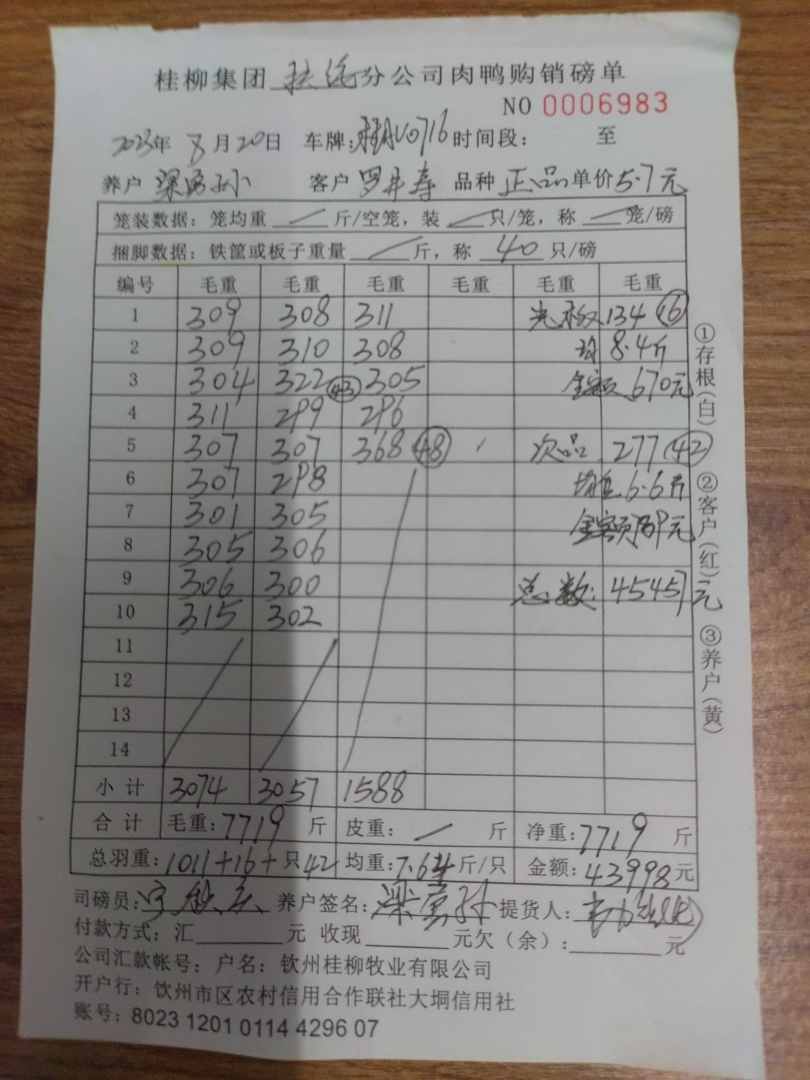 桂柳集团 扶绥 分公司肉鸭购销磅单
NO 0006983
2023年 8月20日 车牌:桂AU0716 时间段: 至
养户 梁勇孙 客户 罗井寿 品种 正品 单价 5.7元
笼装数据:笼均重 / 斤/空笼,装 / 只/笼,称 / 笼/磅
捆脚数据:铁筐或板子重量 / 斤,称 40 只/磅
编号 毛重 毛重 毛重 毛重 毛重 毛重
1 309 308 311 134 16
2 309 310 308 均 8.4斤
3 304 322 43 305 金额 670元
4 311 299 286
5 307 307 368 48 次品 277 42
6 307 298 均重 6.6斤
7 301 305 金额 元
8 305 306
9 306 300 总数: 45457元
10 315 302
11
12
13
14
小计 3074 3057 1588
合计 毛重:7719 斤 皮重: / 斤 净重:7719 斤
总羽重:1011+16+只42 均重:7.64斤/只 金额:43998元
司磅员: 养户签名:梁勇孙 提货人:
付款方式:汇 元 收现 元欠(余): 元
公司汇款帐号:户名:钦州桂柳牧业有限公司
开户行:钦州市区农村信用合作联社大垌信用社
账号:8023 1201 0114 4296 07
①存根(白) ②客户(红) ③养户(黄)